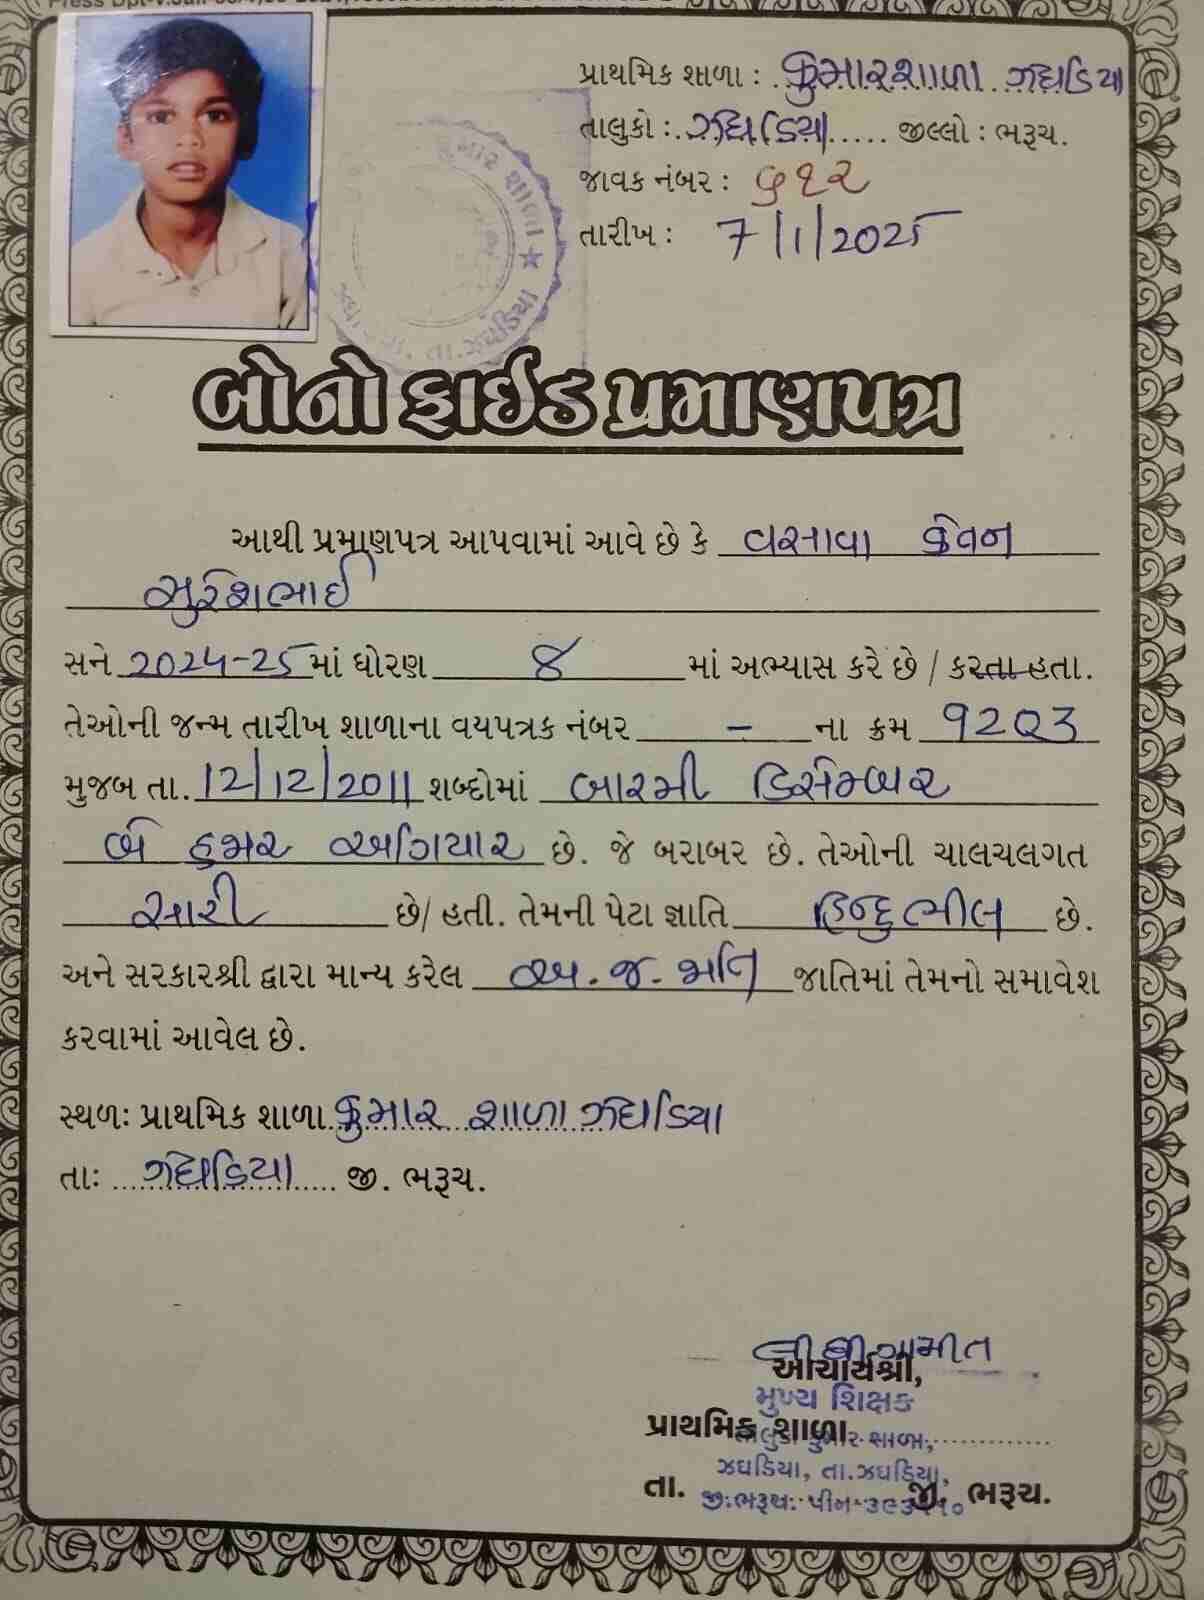 પ્રાથમિક શાળા : કુમારશાળા ઝઘડિયા
તાલુકો : ઝઘડિયા જીલ્લો : ભરૂચ.
જાવક નંબર : ૬૧૨
તારીખ : 7/1/2025
કુમાર શાળા ★
ઝઘડિયા
બોનોફાઈડ પ્રમાણપત્ર
આથી પ્રમાણપત્ર આપવામાં આવે છે કે વસાવા કેવન
સુરેશભાઈ
સને 2024-25 માં ધોરણ ૪ માં અભ્યાસ કરે છે / કરતા હતા.
તેઓની જન્મ તારીખ શાળાના વયપત્રક નંબર - ના ક્રમ 9293
મુજબ તા. 12/12/2011 શબ્દોમાં બારમી ડિસેમ્બર
બે હજાર અગિયાર છે. જે બરાબર છે. તેઓની ચાલચલગત
સારી છે/ હતી. તેમની પેટા જ્ઞાતિ હિન્દુ ભીલ છે.
અને સરકારશ્રી દ્વારા માન્ય કરેલ અ.જ.જાતિ જાતિમાં તેમનો સમાવેશ
કરવામાં આવેલ છે.
સ્થળઃ પ્રાથમિક શાળા કુમાર શાળા ઝઘડિયા
તાઃ ઝઘડિયા જી. ભરૂચ.
આચાર્યશ્રી,
મુખ્ય શિક્ષક
પ્રાથમિક શાળા
તાલુકા કુમાર શાળા,
ઝઘડિયા, તા.ઝઘડિયા,
તા. જી. ભરૂચ.
જી:ભરૂચ: પીન-